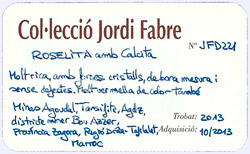 Col·lecció Jordi Fabre
Nº JFD221
ROSELITA amb Calcita
Molt rica, amb forces cristalls, de bona mesura i
sense defectes. Molt vermella de color també
Mines Aghbar, Tansifite, Agdz,
districte miner Bou Azzer,
Província Zagora, Regió Drâa-Tafilalet,
Marroc
Trobat: 2013
Adquisició: 10/2013